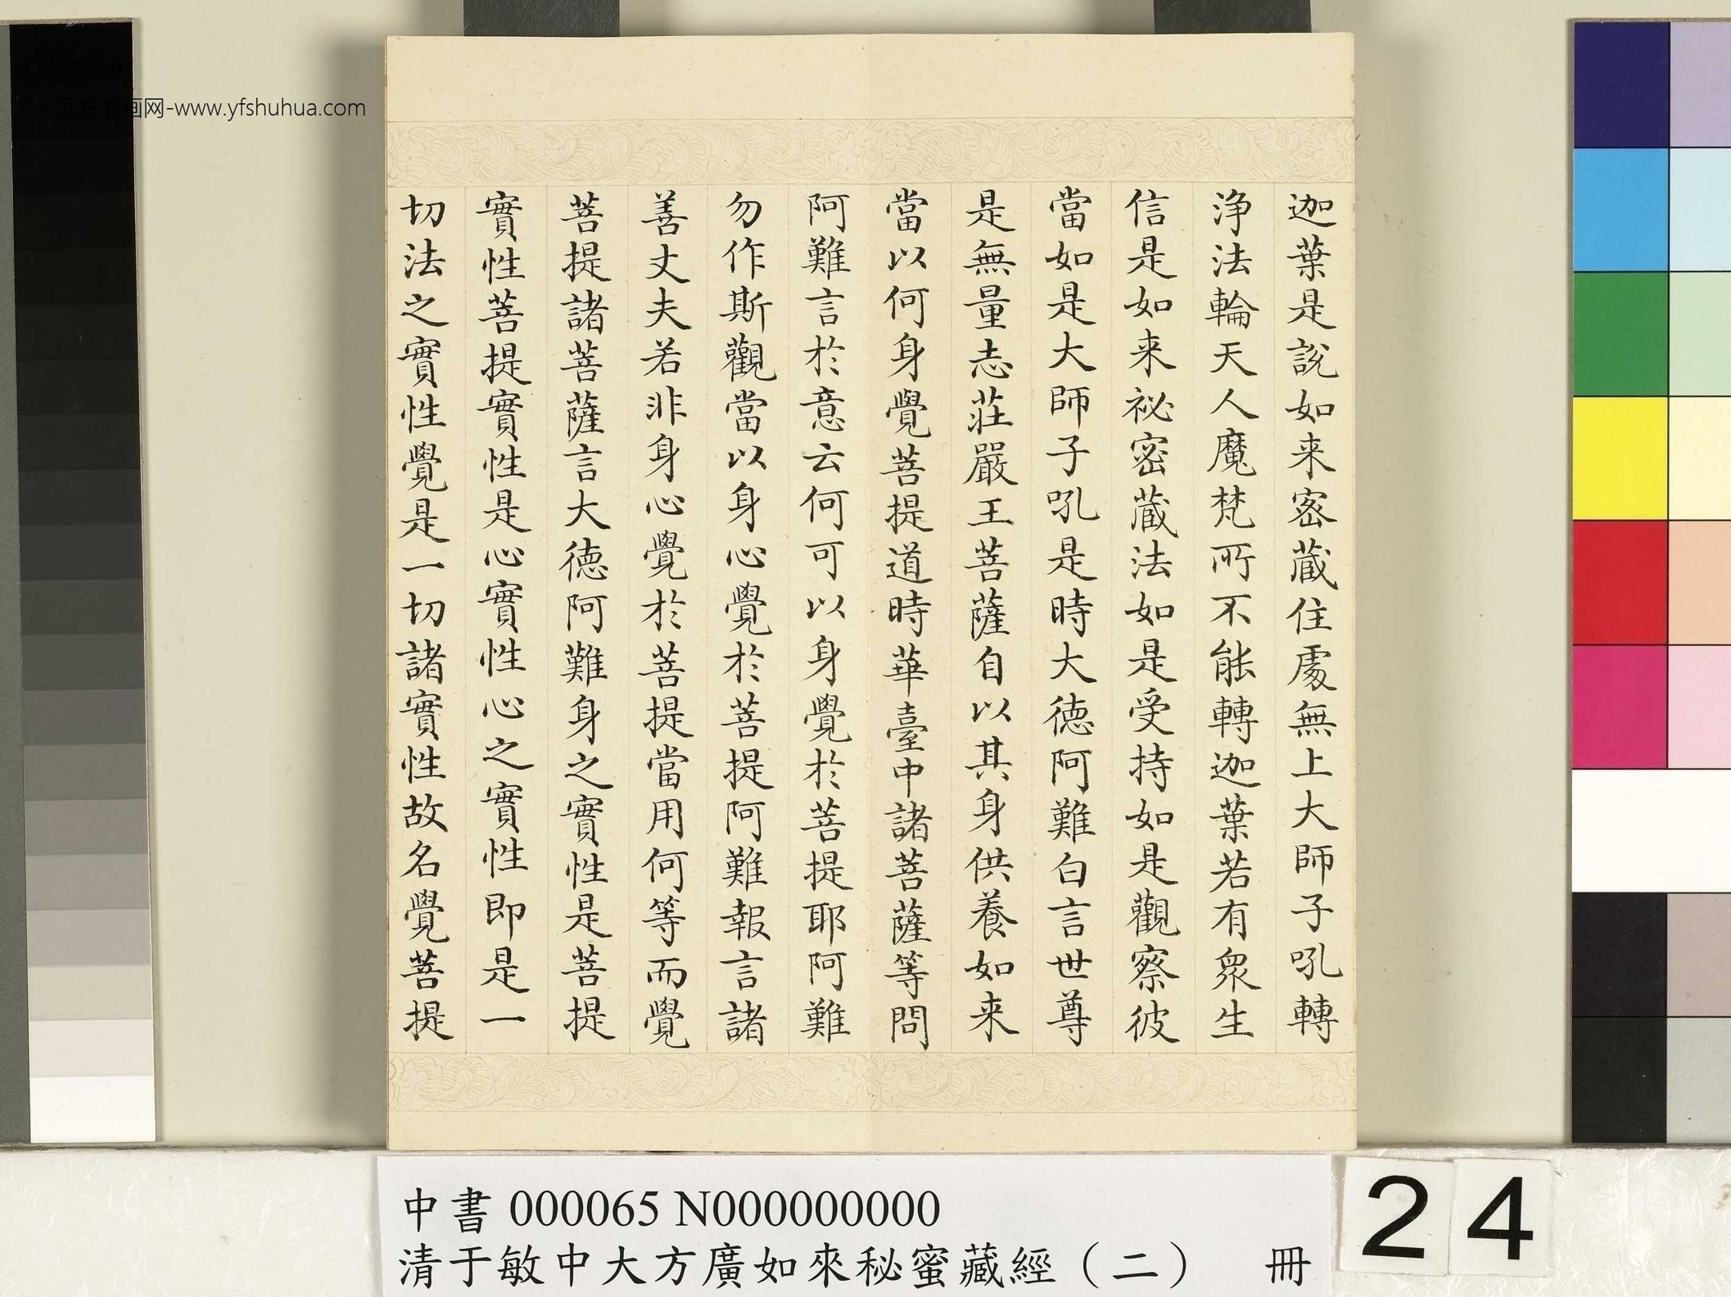 迦葉是說如来密蔵住處無上大師子吼轉
淨法輪天人魔梵所不能轉迦葉若有衆生
信是如来祕密蔵法如是受持如是觀察彼
當如是大師子吼是時大德阿難白言世尊
是無量志莊嚴王菩薩自以其身供養如来
當以何身覺菩提道時華臺中諸菩薩等問
阿難言於意云何可以身覺於菩提耶阿難
勿作斯觀當以身心覺於菩提阿難報言諸
善丈夫若非身心覺於菩提當用何等而覺
菩提諸菩薩言大德阿難身之實性是菩提
實性菩提實性是心實性心之實性即是一
切法之實性覺是一切諸實性故名覺菩提
远方书画网-www.yfshuhua.com
中書 000065 N000000000
清于敏中大方廣如來秘蜜藏經（二） 冊
24